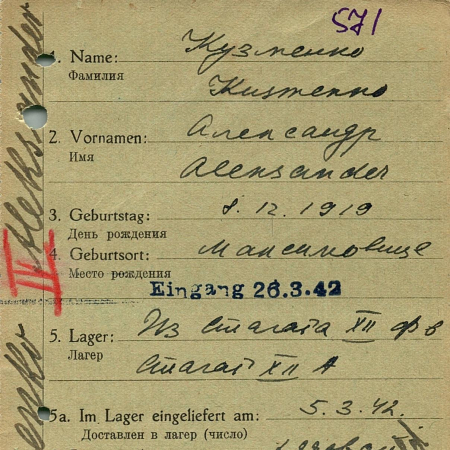 571
1. Name: Кузменко
Фамилия
Kuzmenko
2. Vornamen: Александр
Имя
Aleksander
3. Geburtstag: 8.12.1919
День рождения
4. Geburtsort: Максимовице
Место рождения
Eingang 26.3.42
5. Lager: Из Сталага XII ф в
Лагер
Сталаг XII A
5a. Im Lager eingeliefert am: 5.3.42.
Доставлен в лагер (число)
Aleksander
IV
enko